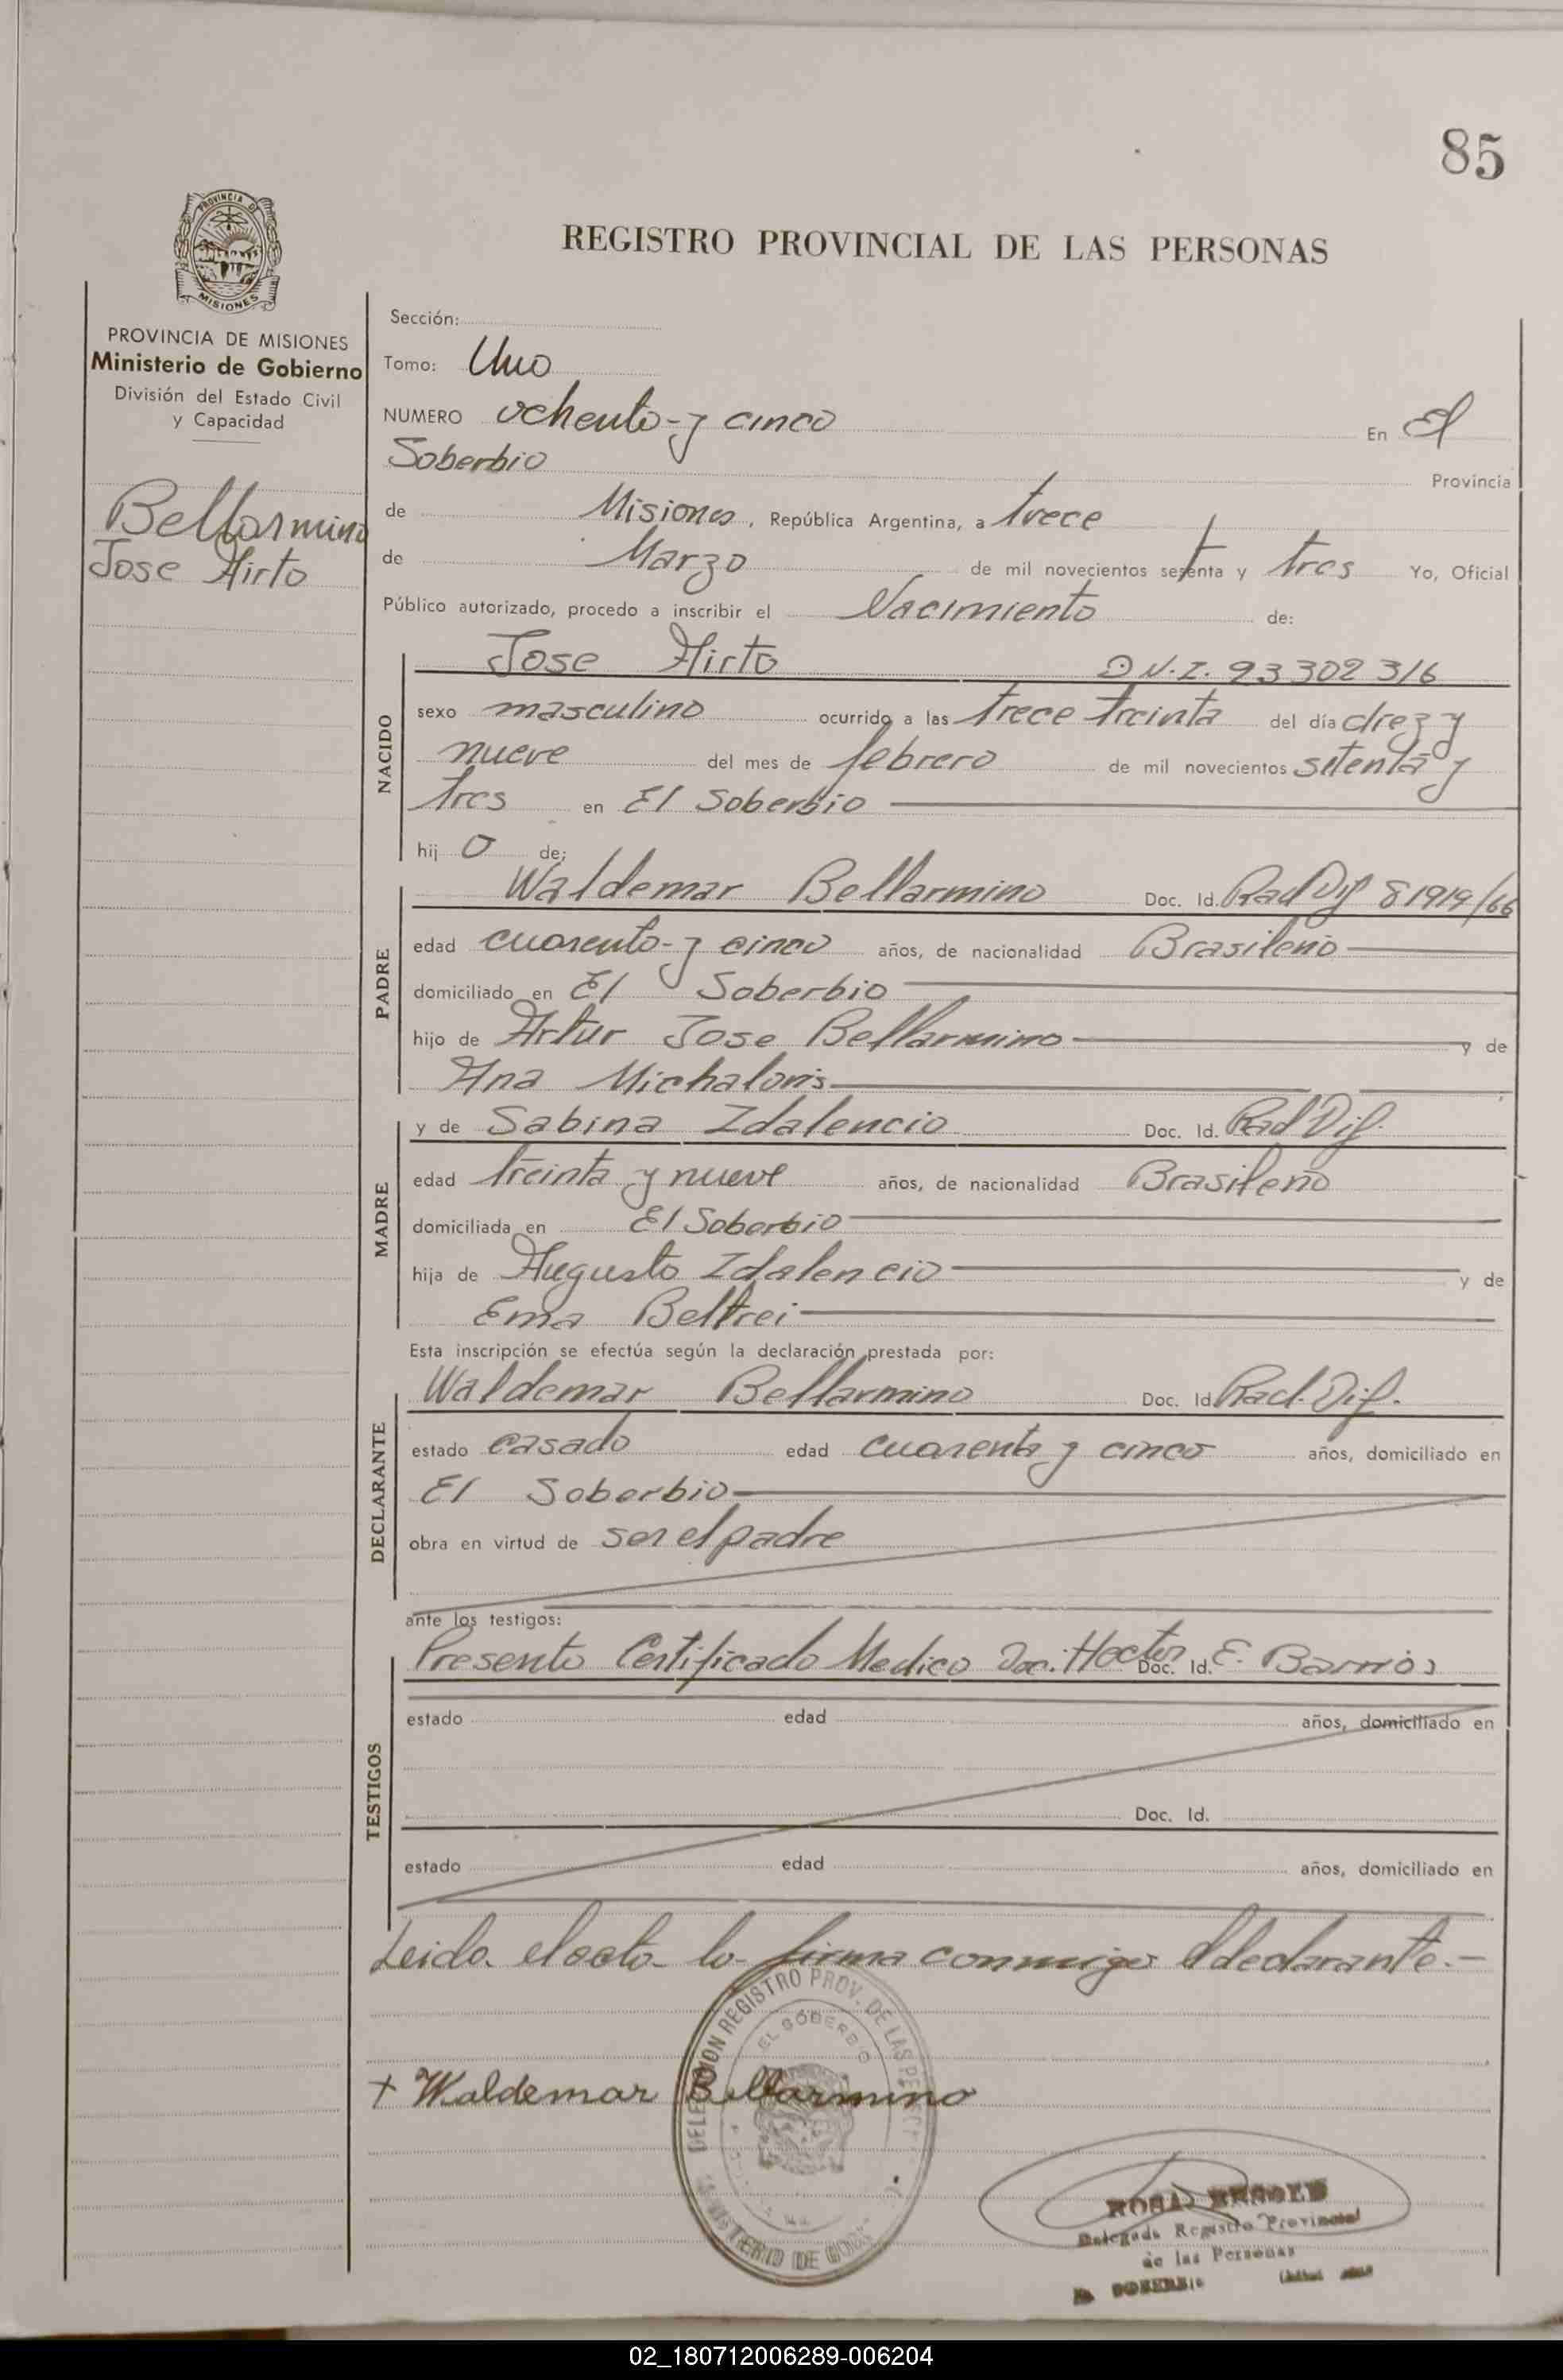 85
PROVINCIA DE
MISIONES
REGISTRO PROVINCIAL DE LAS PERSONAS
PROVINCIA DE MISIONES
Ministerio de Gobierno
División del Estado Civil
y Capacidad
Bellarmino
Jose Airto
Sección:
Tomo: Uno
NUMERO ochenta y cinco En El
Soberbio Provincia
de Misiones, República Argentina, a trece
de Marzo de mil novecientos setenta y tres Yo, Oficial
Público autorizado, procedo a inscribir el Nacimiento de:
NACIDO
Jose Airto D.N.I. 93302316
sexo masculino ocurrido a las trece treinta del día diez y
nueve del mes de febrero de mil novecientos setenta y
tres en El Soberbio
hij o de;
PADRE
Waldemar Bellarmino Doc. Id. Rad Dif 81919/66
edad cuarenta y cinco años, de nacionalidad Brasileño
domiciliado en El Soberbio
hijo de Artur Jose Bellarmino y de
Ana
MADRE
y de Sabina Idalencio Doc. Id. Rad Dif.
edad treinta y nueve años, de nacionalidad Brasileño
domiciliada en El Soberbio
hija de Augusto Idalencio y de
Ema Beltrei
Esta inscripción se efectúa según la declaración prestada por:
DECLARANTE
Waldemar Bellarmino Doc. Id Rad. Dif.
estado casado edad cuarenta y cinco años, domiciliado en
El Soberbio
obra en virtud de ser el padre
ante los testigos:
TESTIGOS
Presento Certificado Medico Doc. Hector Doc. Id. E. Barrios
estado edad años, domiciliado en
Doc. Id.
estado edad años, domiciliado en
Leida el acta la firma conmigo el declarante.-
DELEGACION REGISTRO PROV. DE LAS PERS.
EL SOBERBIO
MINISTERIO DE GOB.
+ Waldemar Bellarmino
Delegada Registro Provincial
de las Personas
EL SOBERBIO
02_180712006289-006204